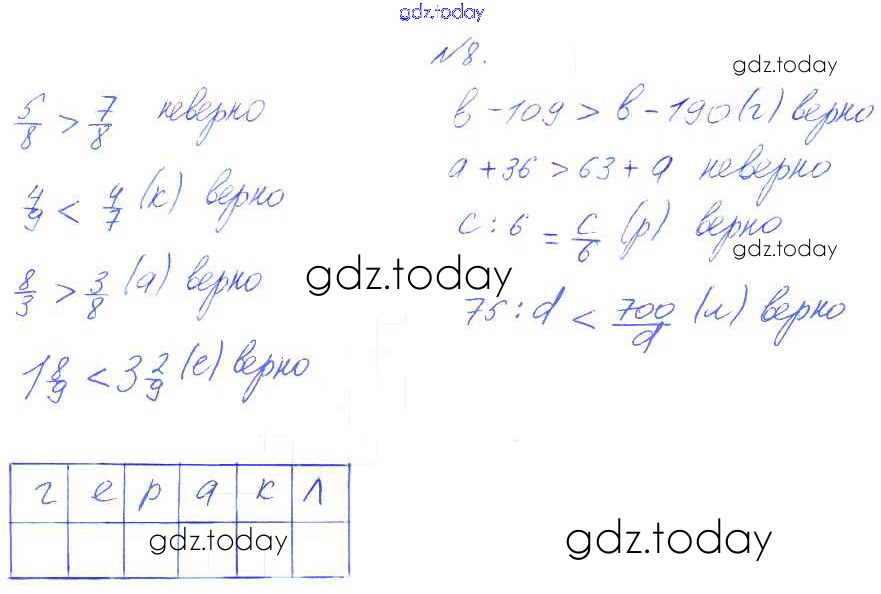 gdz.today
№8.
gdz.today
5/8 > 7/8 неверно
4/9 < 4/7 (к) верно
8/3 > 3/8 (а) верно
1 8/9 < 3 2/9 (е) верно
в - 109 > в - 190 (г) верно
а + 36 > 63 + а неверно
с : 6 = с/6 (р) верно
gdz.today
75 : d < 700/d (л) верно
gdz.today
г е р а к л
gdz.today
gdz.today